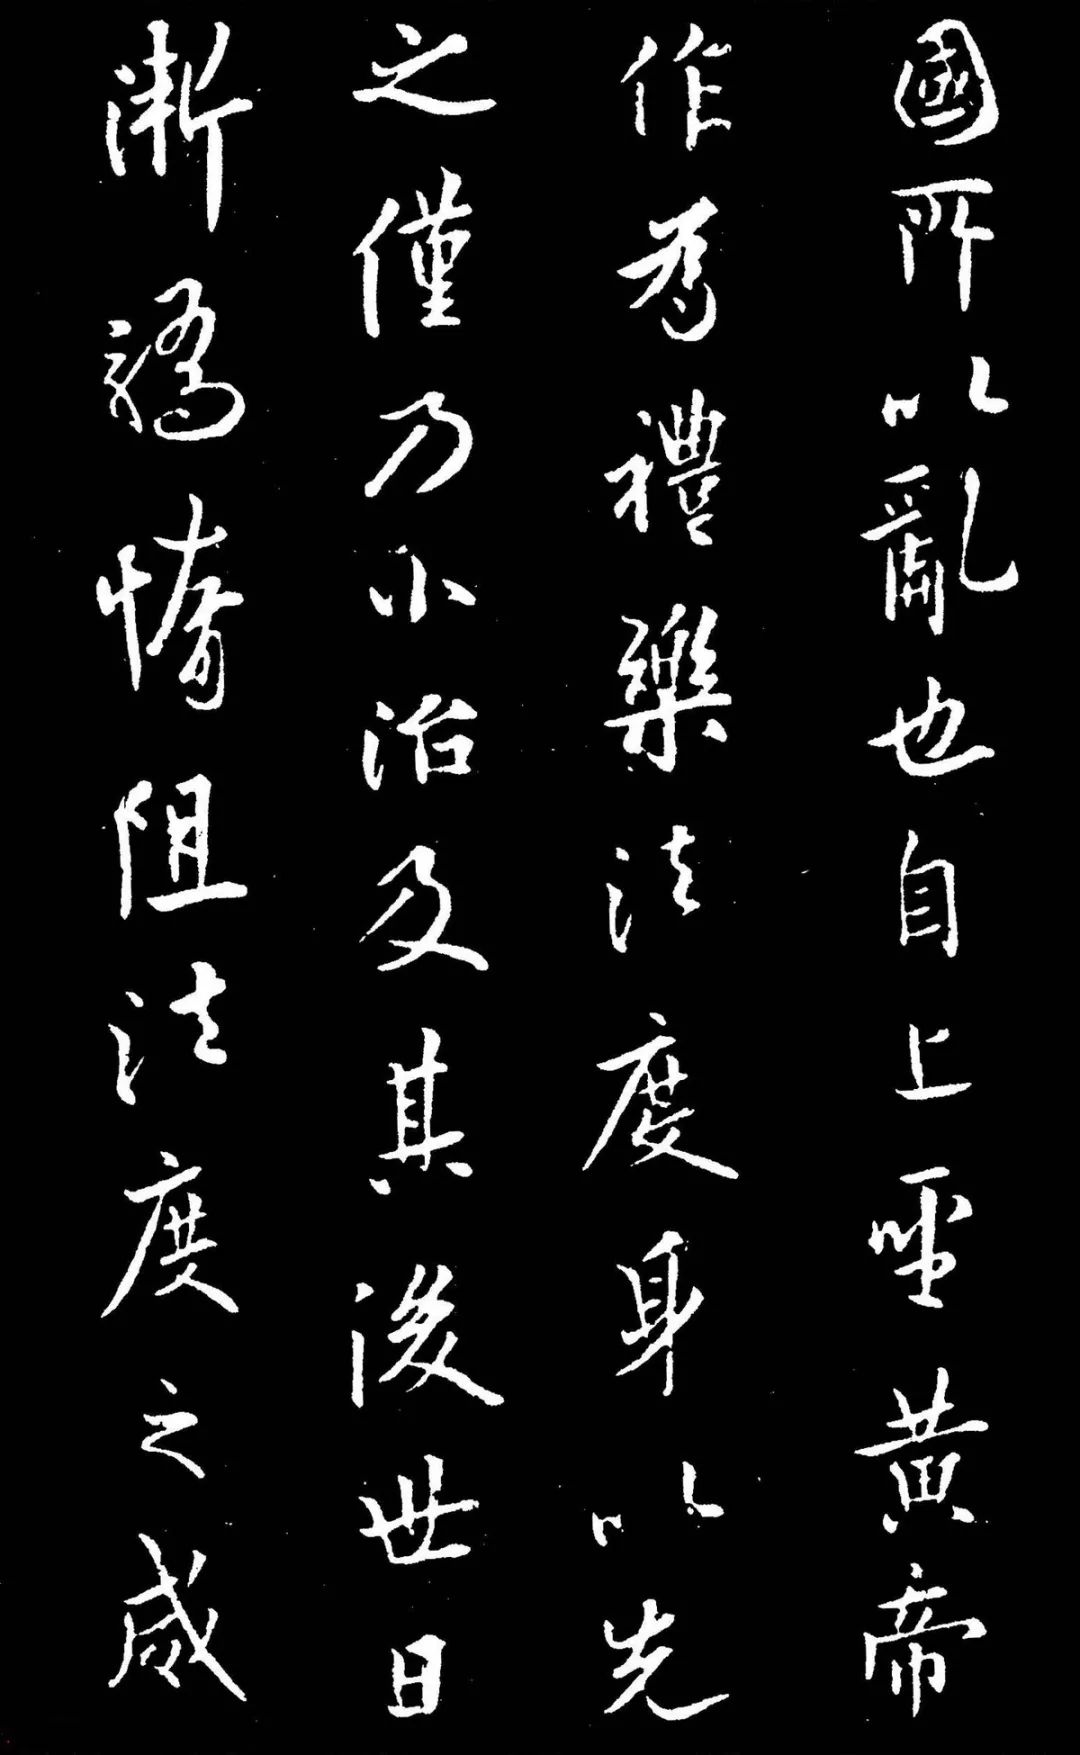 國所以亂也自上聖黃帝
作為禮樂法度身以先
之僅乃小治及其後世日
漸驕惰阻法度之威